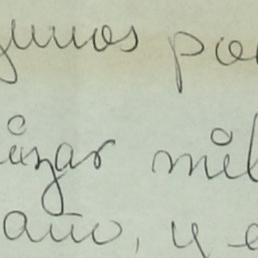 gunos po
ázar mil
año, y e